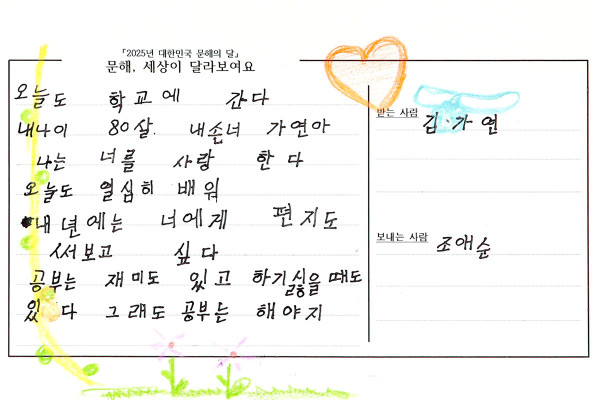 「2025년 대한민국 문해의 달」
문해, 세상이 달라보여요
오늘도 학교에 간다
내나이 80살. 내손녀 가연아
나는 너를 사랑 한다
오늘도 열심히 배워
내년에는 너에게 편지도
써보고 싶다
공부는 재미도 있고 하기싫을때도
있다 그래도 공부는 해야지
받는 사람
김·가연
보내는 사람
조애순